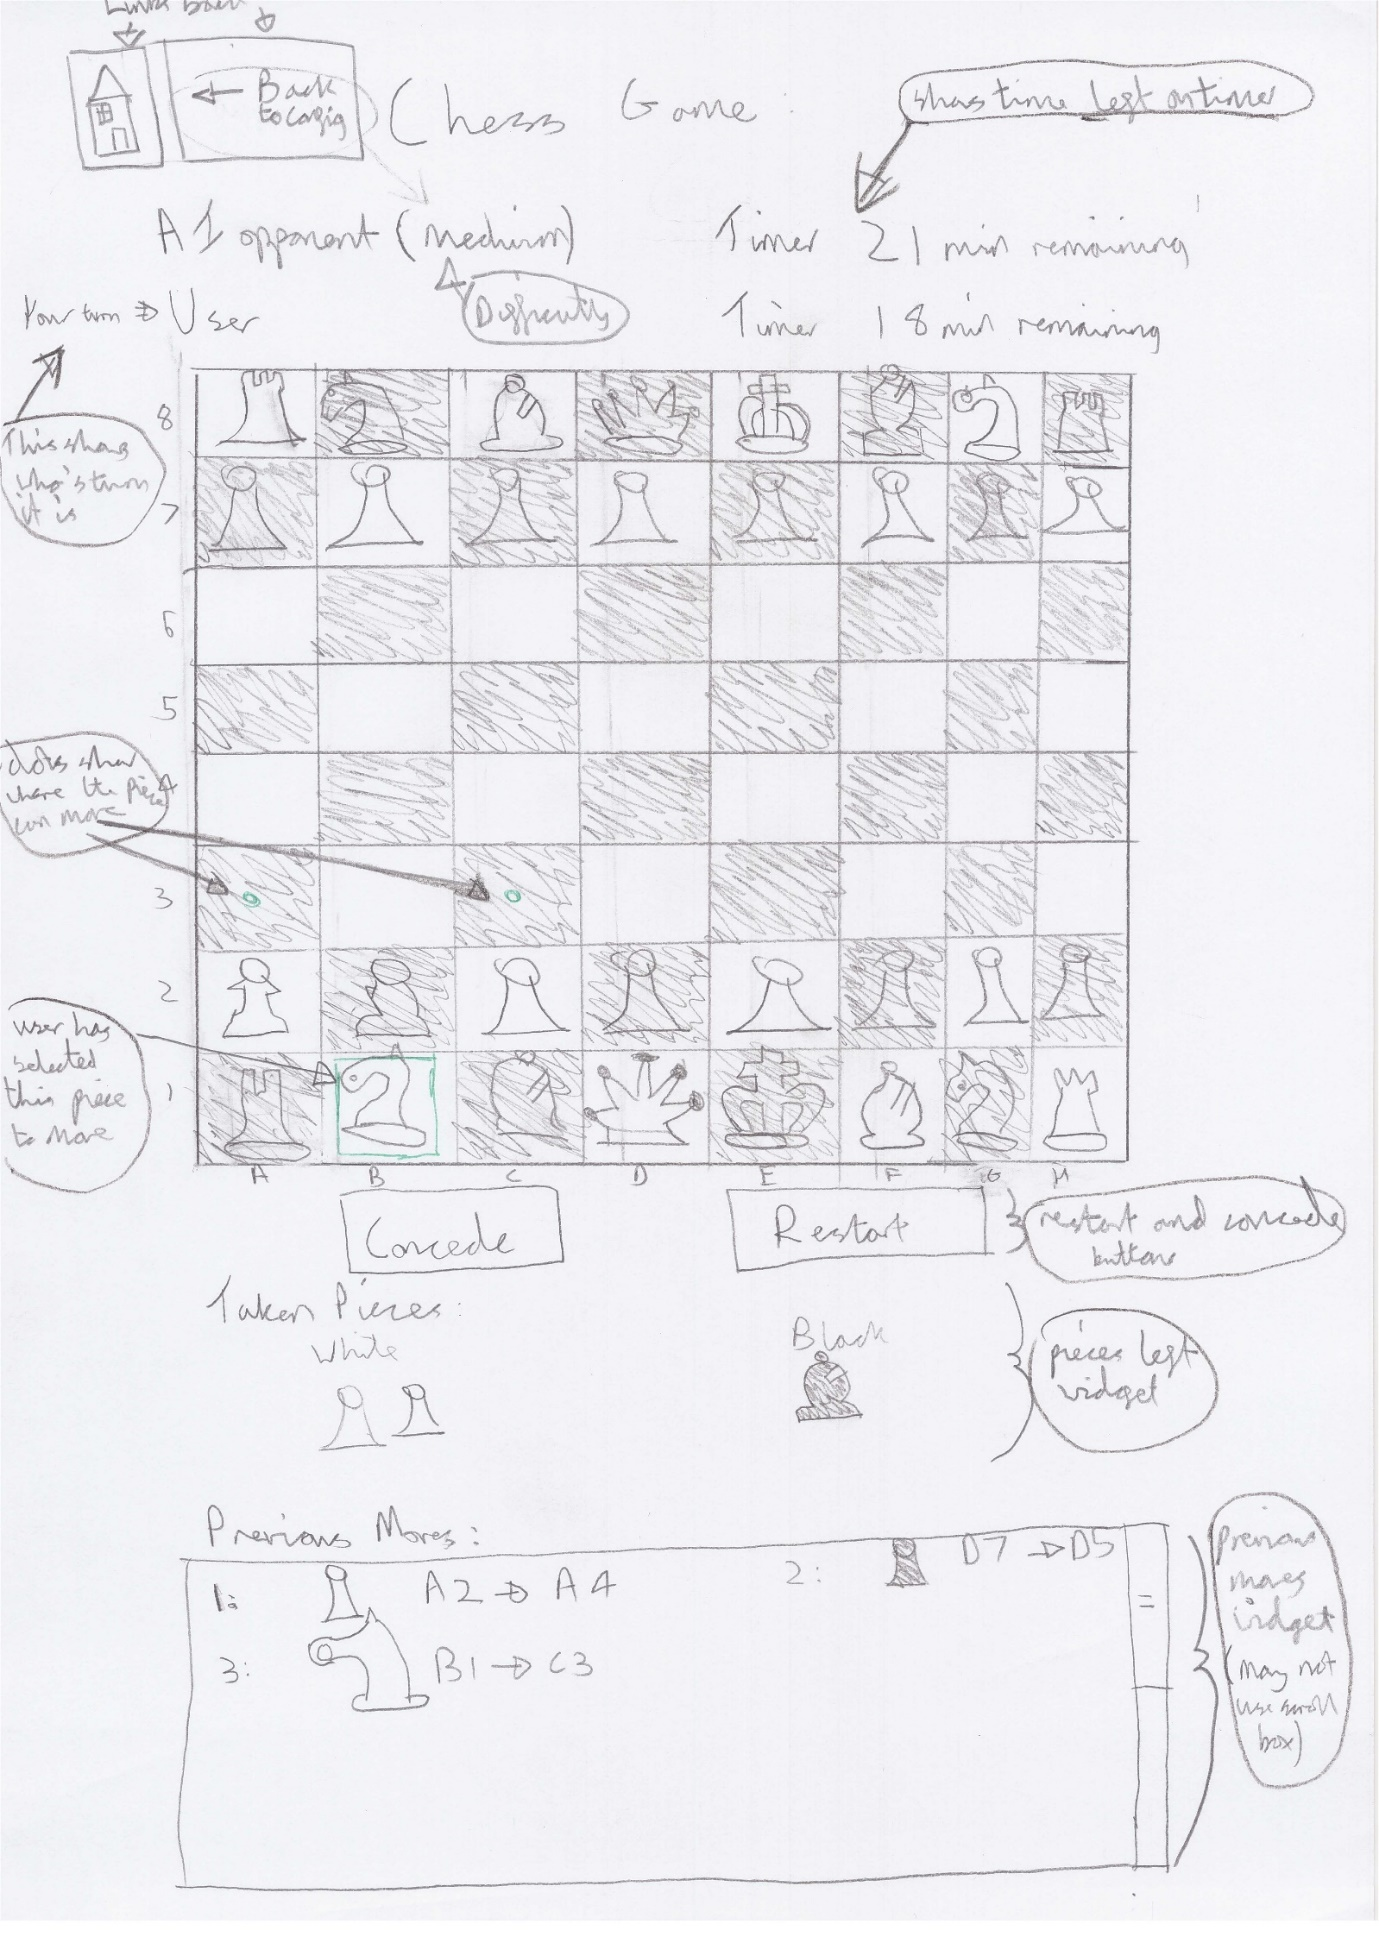 Links back
← Back
to config
Chess Game:
shows time left on timer
AI opponent (Medium)
Timer 21 min remaining
Difficulty
Your turn → User
Timer 18 min remaining
This shows
who's turn
it is
8
7
6
5
4
3
2
1
dots show
where the piece
can move
user has
selected
this piece
to move
A B C D E F G H
Concede
Restart
restart and concede
buttons
Taken Pieces:
White
Black
pieces left
widget
Previous Moves:
1: A2 → A4
2: D7 → D5
3: B1 → C3
Previous
moves
widget
(may not
use scroll
box)